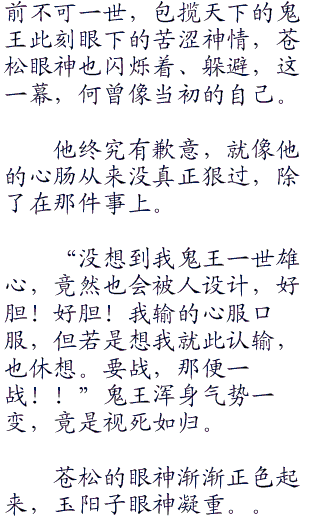 前不可一世，包揽天下的鬼
王此刻眼下的苦涩神情，苍
松眼神也闪烁着、躲避，这
一幕，何曾像当初的自己。
他终究有歉意，就像他
的心肠从来没真正狠过，除
了在那件事上。
“没想到我鬼王一世雄
心，竟然也会被人设计，好
胆！好胆！我输的心服口
服，但若是想我就此认输，
也休想。要战，那便一
战！！”鬼王浑身气势一
变，竟是视死如归。
苍松的眼神渐渐正色起
来，玉阳子眼神凝重。。